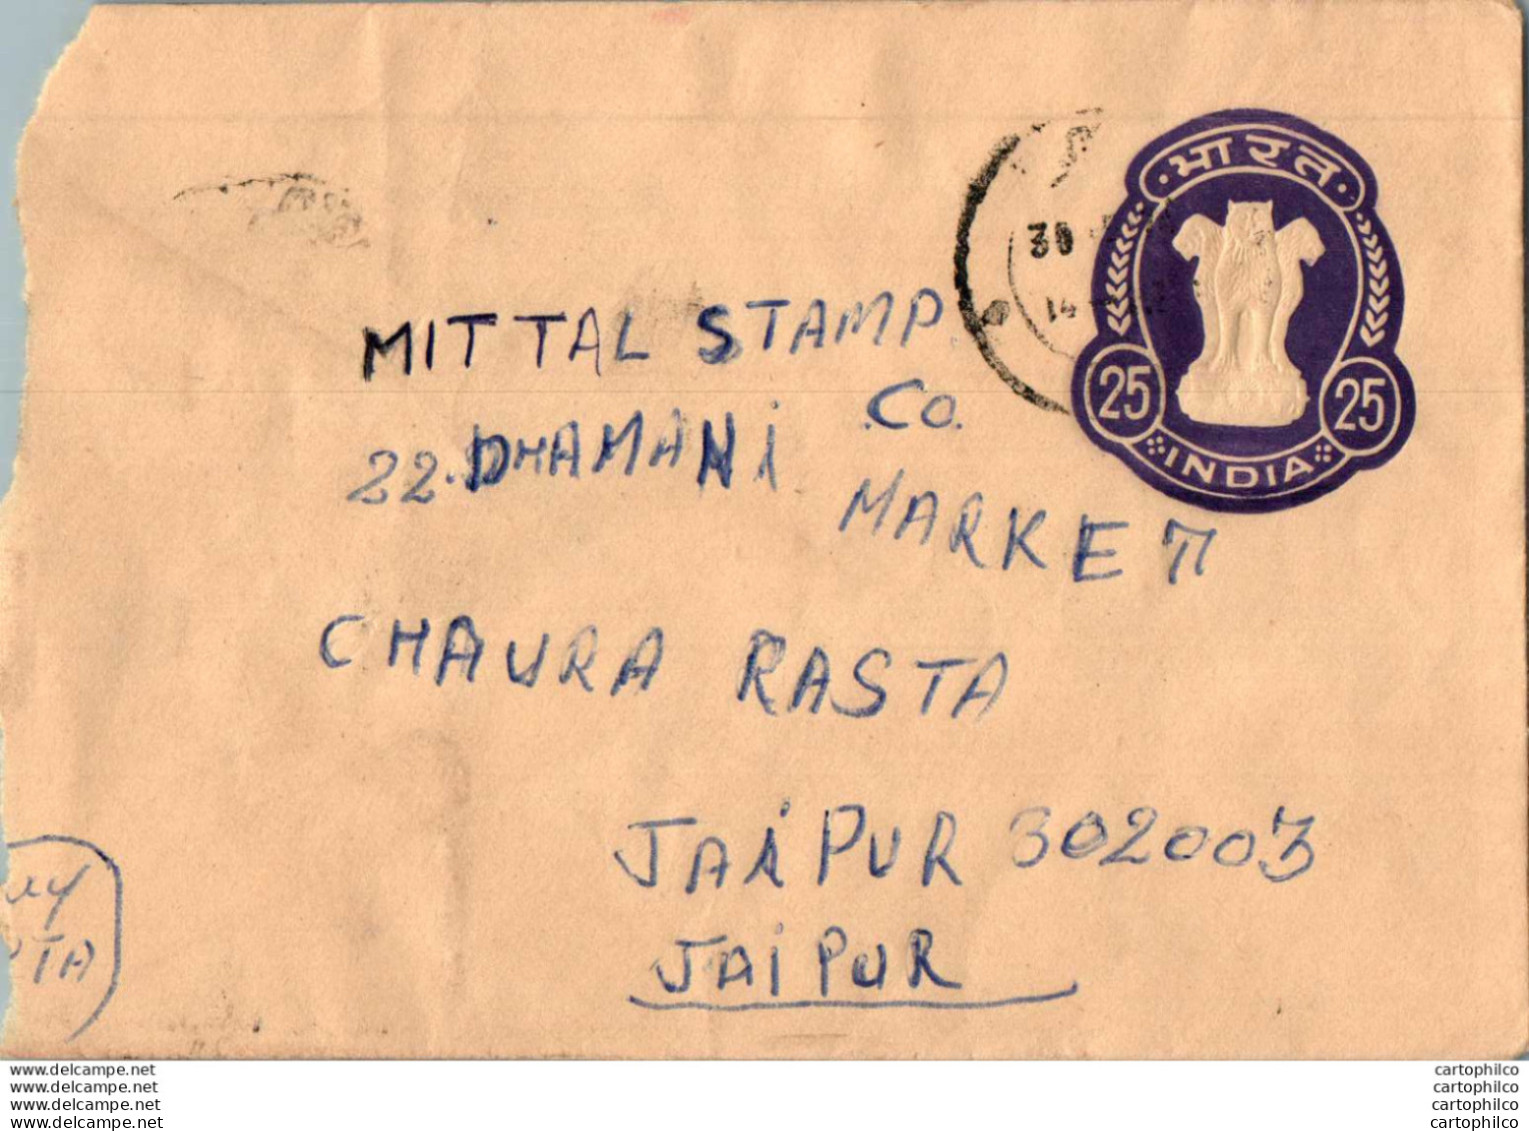 भारत
30
14
25 25
INDIA
MITTAL STAMP
CO.
22. DHAMANI
MARKET
CHAURA RASTA
JAIPUR 302003
JAIPUR
TA
www.delcampe.net
www.delcampe.net
www.delcampe.net
www.delcampe.net
cartophilco
cartophilco
cartophilco
cartophilco